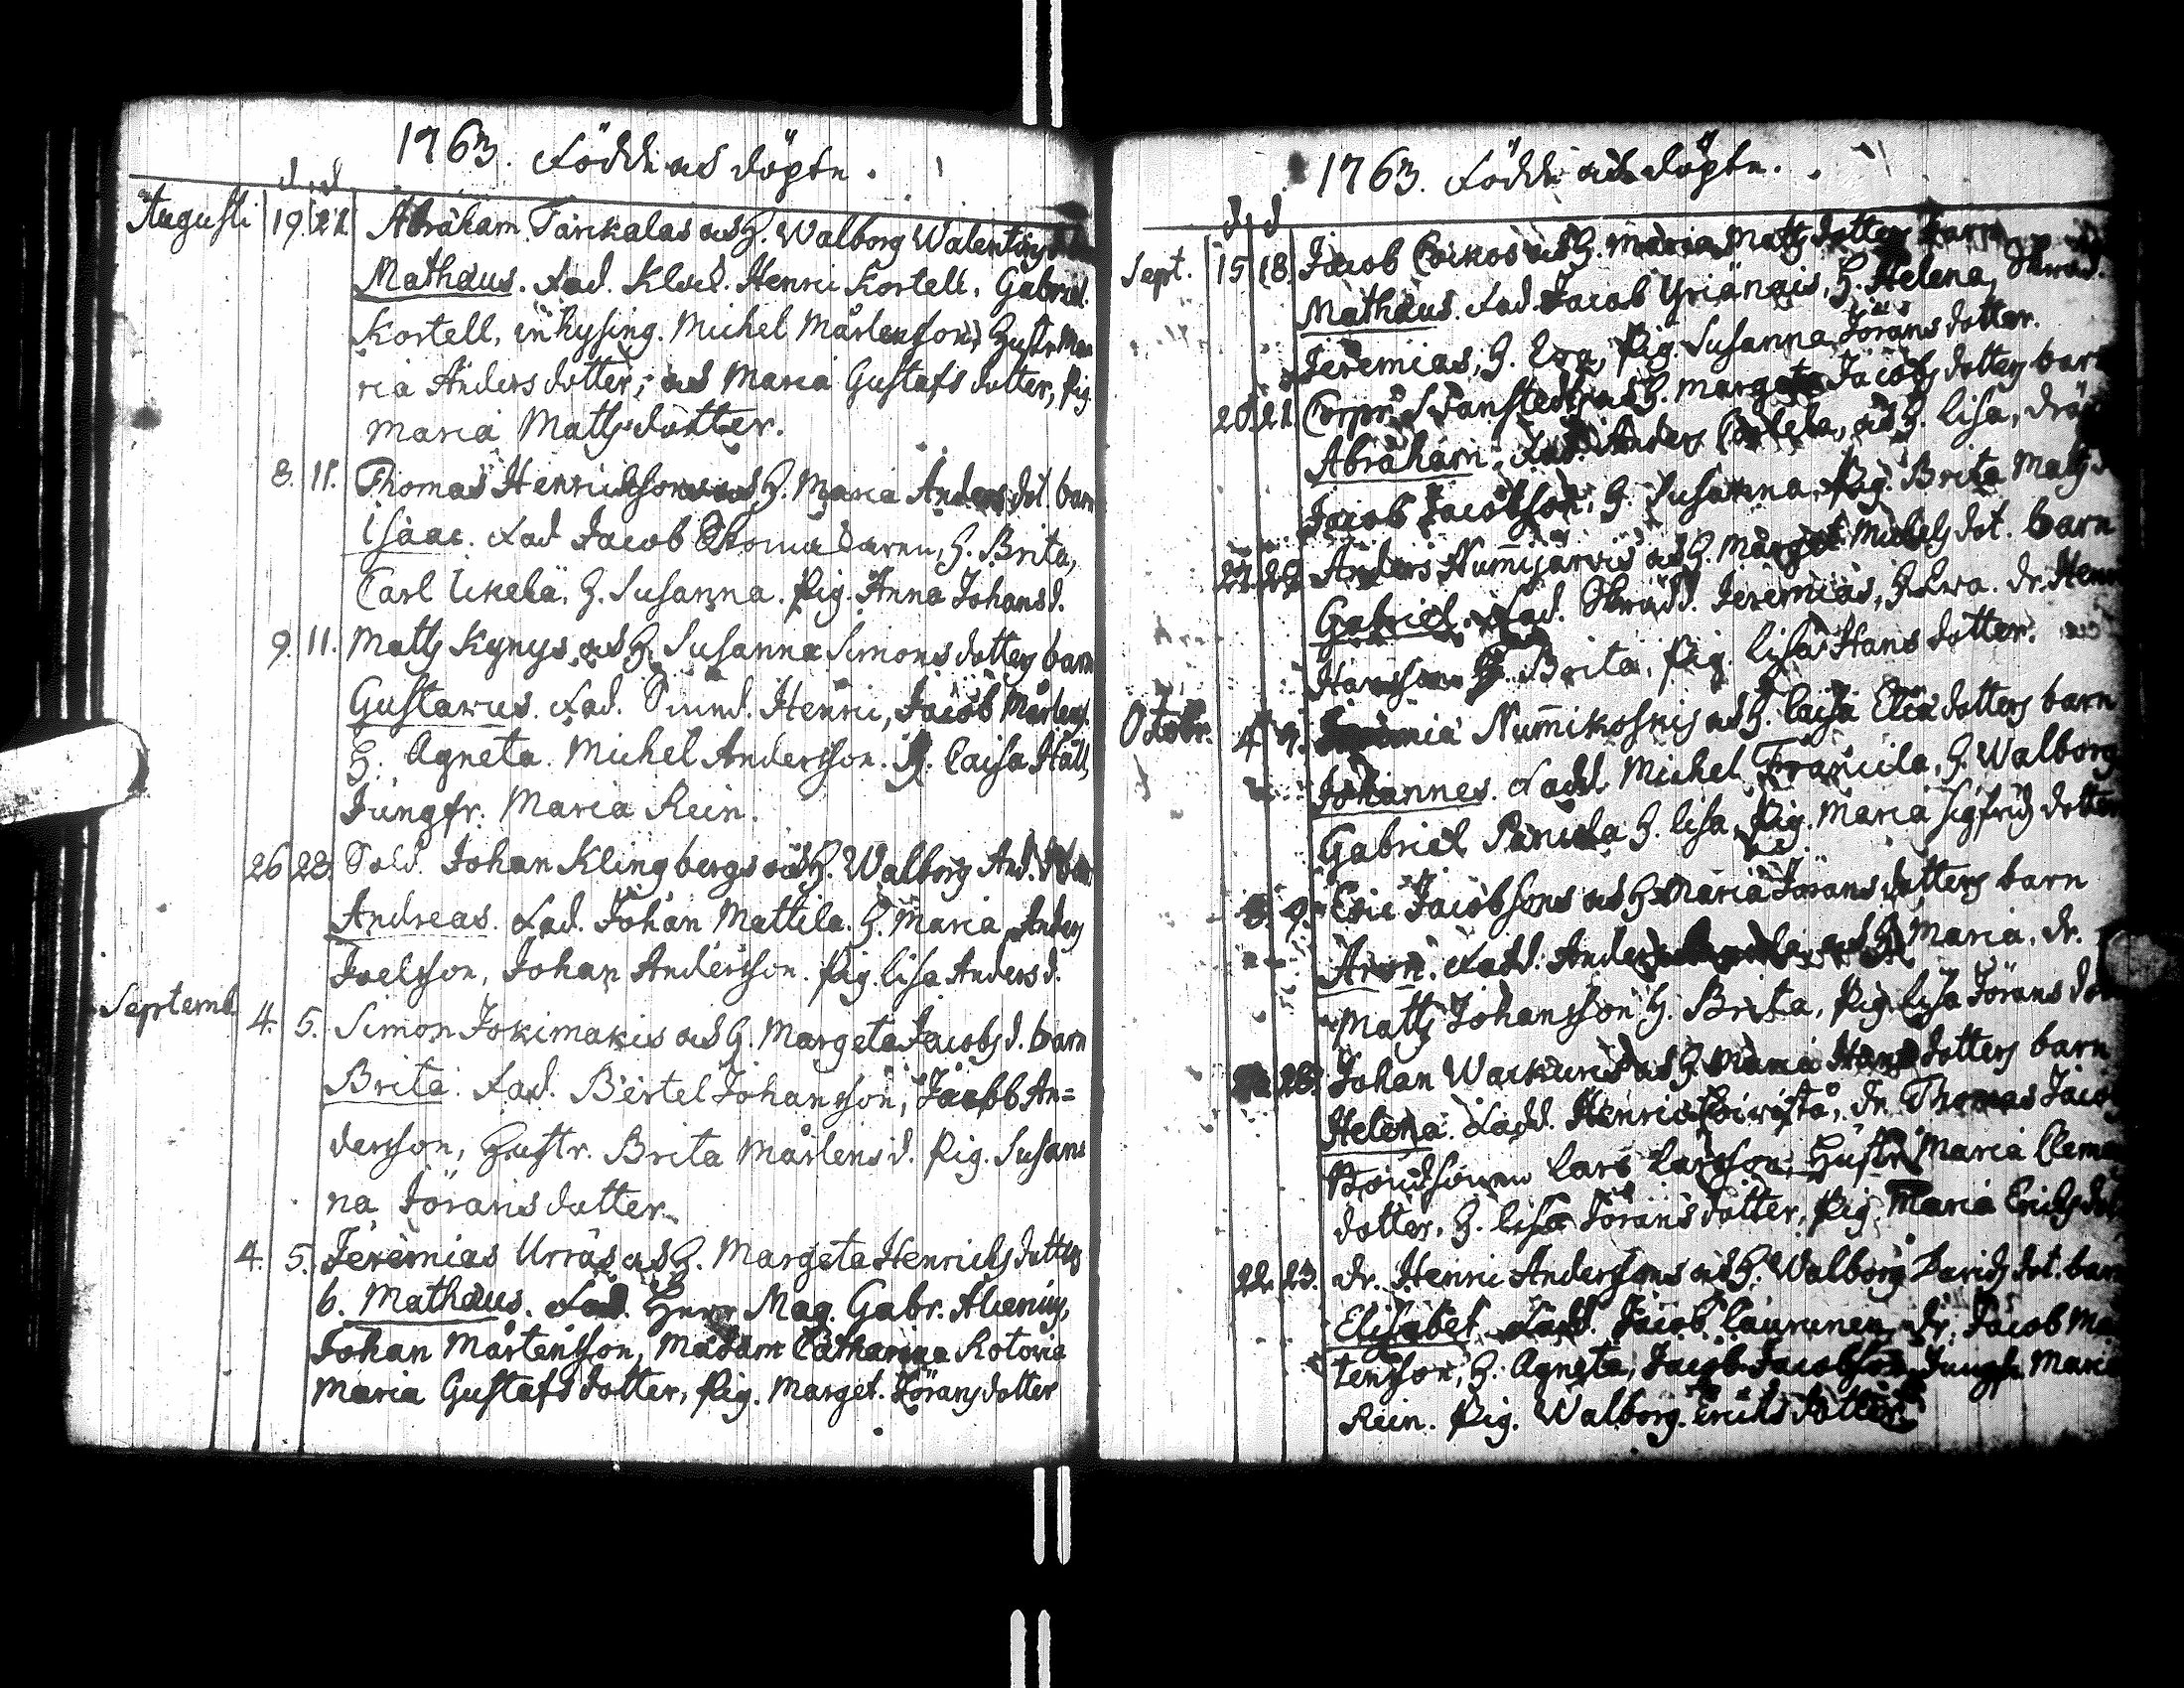 1763. Födde och döpte.
d. d
Augusti 19. 21. Abraham Tarkalas och H. Walborg Walentins
Mathæus. Fad. Klock. Henric Kortell, Gabriel
Kortell, inhysing. Michel Mårtensson, Hustr. Ma
ria Andersdotter, och Maria Gustafsdotter, Pig.
Maria Mattsdotter.
8. 11. Thomas Henricssons och H. Maria Anders dot. barn
Isaac. Fad. Jacob H. Brita,
Carl Ukela, H. Susanna. Pig. Anna Johansd.
9. 11. Matts Kynys och H. Susanna Simonsdotters barn
Gustavus. Fad. Henric, Jacob Mårtens.
H. Agneta. Michel Andersson. H. Caisa Häll,
Jungfr. Maria Rein.
26 28. Sold. Johan Klingbergs och H. Walborg And.
Andreas. Fad. Johan Mattila. H. Maria, Anders
Joelsson, Johan Andersson. Pig. Lisa Andersd.
Septemb. 4. 5. Simon Jokimakis och H. Margeta Jacobs d. barn
Brita. Fad. Bertel Johansson, Jacob An=
dersson, Hustr. Brita Mårtensd. Pig. Susan
na Jöransdotter.
4. 5. Jeremias Urräs och H. Margeta Henrichsdotters
b. Mathæus. Fad. Herr Mag. Gabr. Alcenius,
Johan Mårtensson, Madam Catharina Rotovia
Maria Gustafsdotter, Pig. Marget. Jöransdotter
1763. Födde och döpte.
d. d
Sept. 15 18. Jacob Coikos och H. Maria Mattsdotters barn
Mathæus. Fad. Jacob Yrjänais, H. Helena, Skräd.
Jeremias, H. Eva, Pig. Susanna Jöransdotter.
20. 21. Corpr. Svanstedts och H. Margeta Jacobsdotters barn
Abraham. Fad. Anders och H. Lisa, drä
Jacob Jacobsson, H. Susanna, Pig. Brita Matts
Anders Numijarvis och H. Marget Michels dot. barn
Gabriel. Fad. Skrädd. Jeremias, H. Eva. dr. Hen
Hansson H. Brita, Pig. Lisa Hansdotter.
Octobr. 4 9. Nummikoskis och H. Caisa Eliædotters barn
Johannes. Fadd. Michel Francila, H. Walborg
Gabriel H. Lisa, Pig. Maria Sigfridsdotter
8. 9. Eric Jacobssons och H. Maria Jöransdotters barn
Aron. Fadd. Anders och H. Maria, dr.
Matts Johansson H. Brita, Pig. Lisa Jörans dot
Johan Wackuris och H. Maria Hansdotters barn
Helena. Fadd. Henric Coivisto, dr. Thomas Jacob
Bondsonen Lars Larsson, Hustr. Maria Clem
dotter, H. Lisa Jöransdotter, Pig. Maria Erichsdot
22. 23. dr. Henric Anderssons och H. Walborg Davids dot. barn
Elisabet. Fadd. Jacob Laurunen, dr. Jacob Mår
tensson, H. Agneta, Jacob Jacobsson Jungfr. Maria
Rein. Pig. Walborg Erichsdotter.